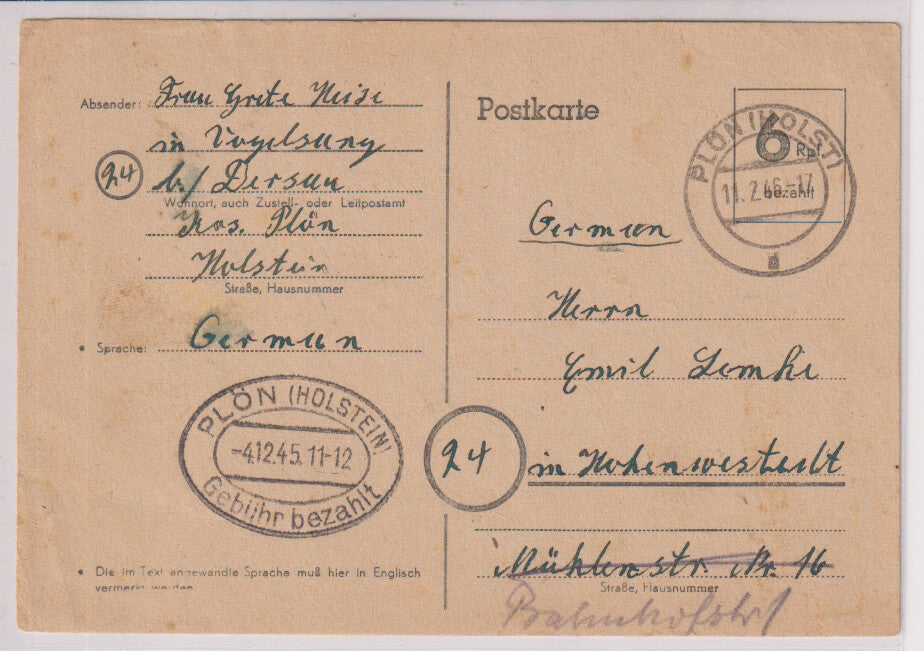 Absender: Frau Grete Heise
in Vogelsang
24
b/ Dersau
Wohnort, auch Zustell- oder Leitpostamt
Krs. Plön
Holstein
Straße, Hausnummer
• Sprache: German
PLÖN (HOLSTEIN)
-4.12.45.11-12
Gebühr bezahlt
• Die im Text angewandte Sprache muß hier in Englisch
vermerkt werden
Postkarte
6 Rpf
bezahlt
PLÖN (HOLST)
11.2.46-17
a
German
Herrn
Emil Lemke
24
in Hohenwestedt
Mühlenstr. Nr. 16
Straße, Hausnummer
Bahnhofstr